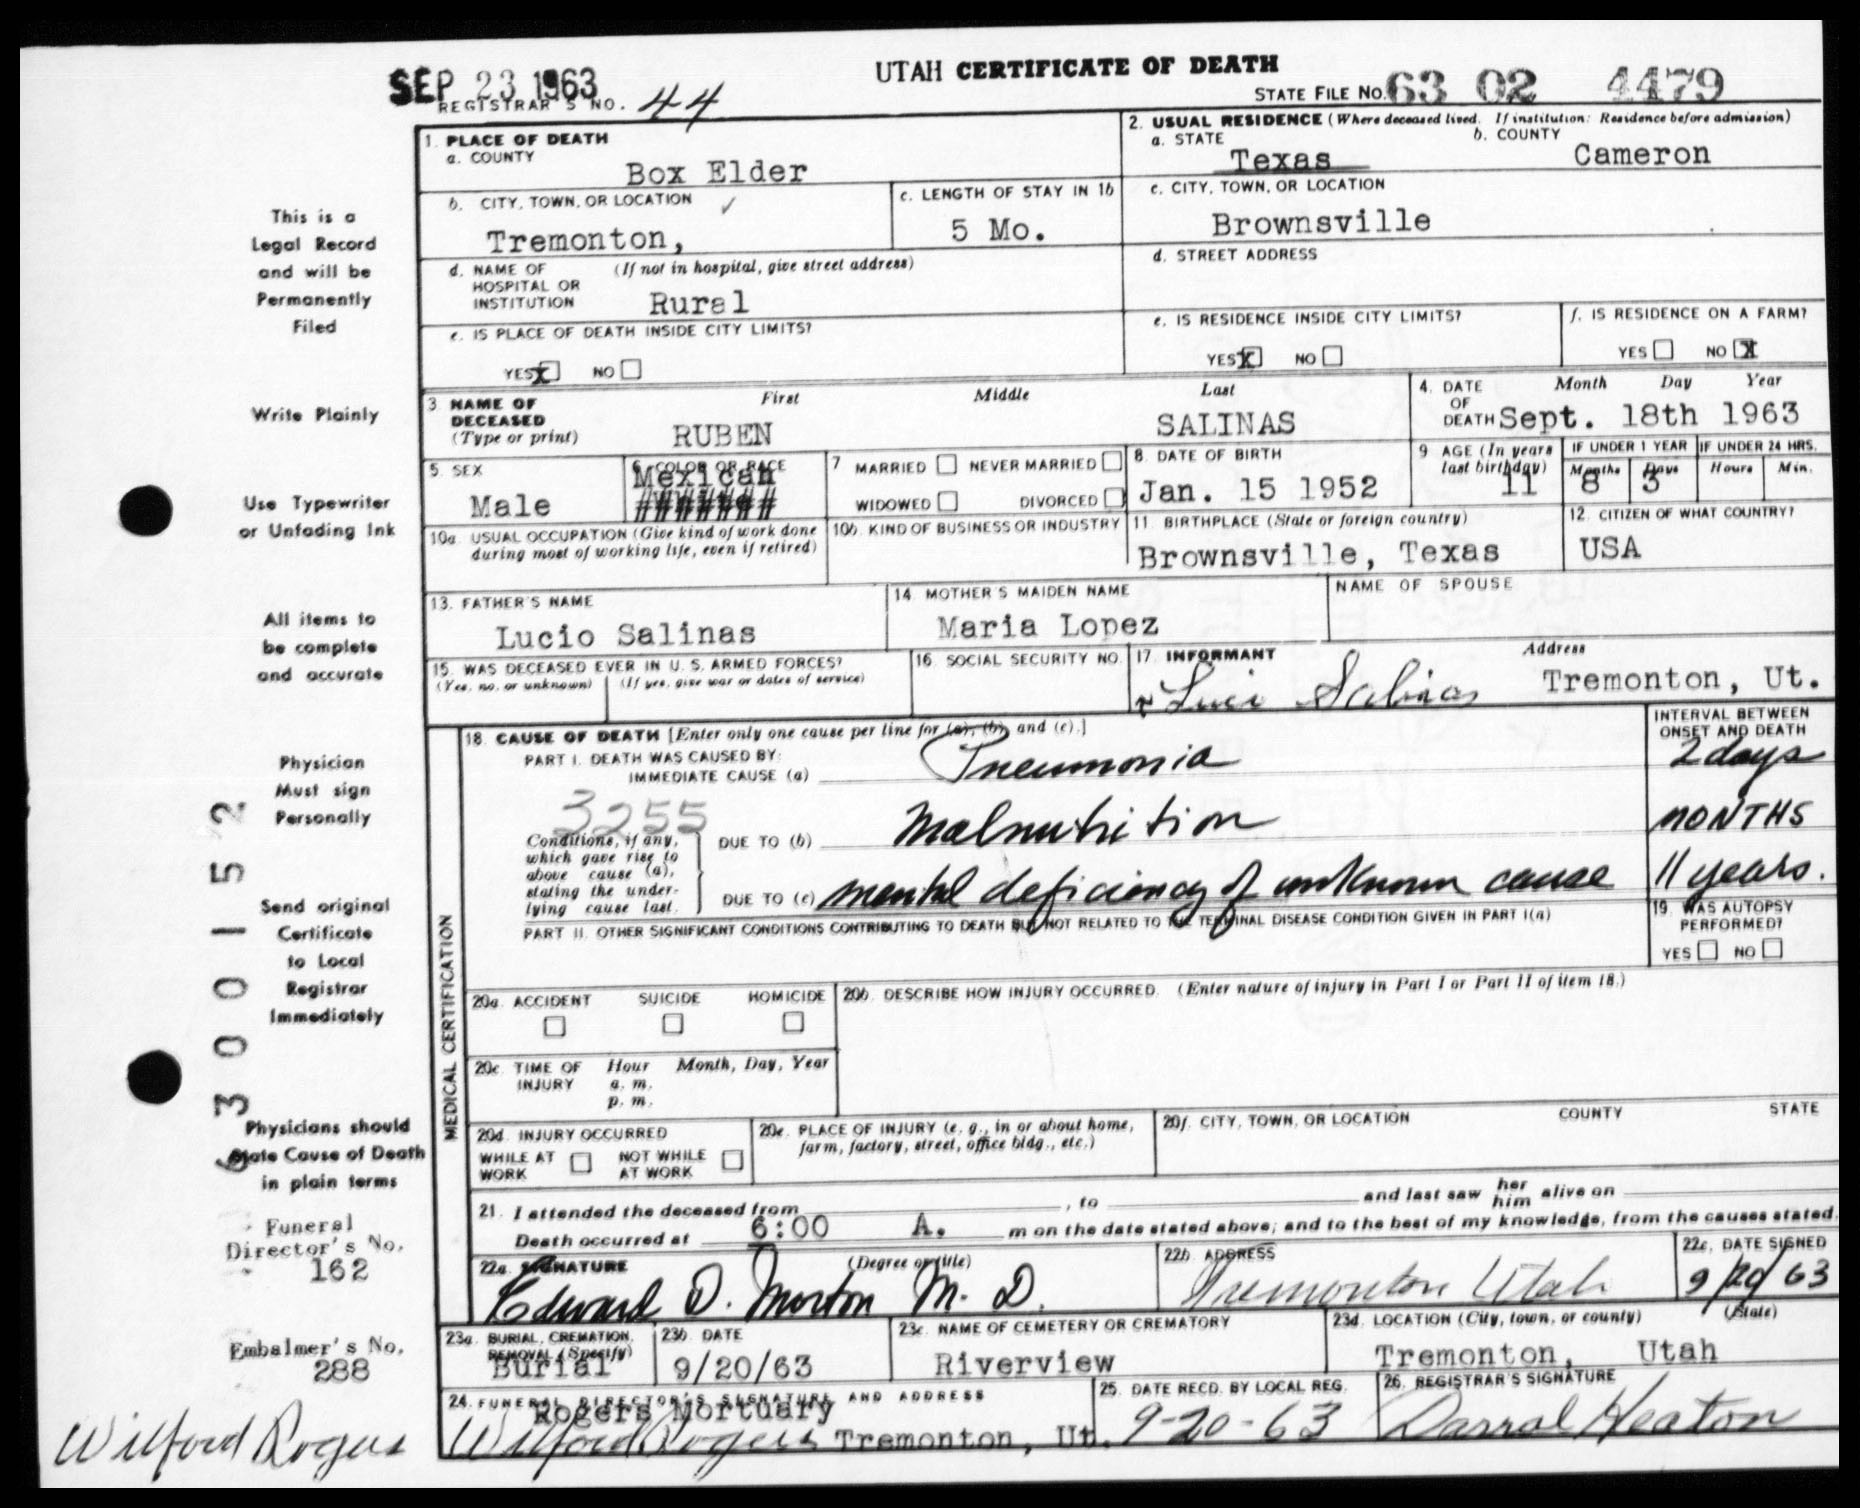 SEP 23 1963
UTAH CERTIFICATE OF DEATH
REGISTRAR'S NO. 44
STATE FILE NO. 63 02 4479
1. PLACE OF DEATH
a. COUNTY
Box Elder
2. USUAL RESIDENCE (Where deceased lived. If institution: Residence before admission)
a. STATE
Texas
b. COUNTY
Cameron
b. CITY, TOWN, OR LOCATION ✓
Tremonton,
c. LENGTH OF STAY IN 1b
5 Mo.
c. CITY, TOWN, OR LOCATION
Brownsville
d. NAME OF HOSPITAL OR INSTITUTION
(If not in hospital, give street address)
Rural
d. STREET ADDRESS
e. IS PLACE OF DEATH INSIDE CITY LIMITS?
YES X NO
e. IS RESIDENCE INSIDE CITY LIMITS?
YES X NO
f. IS RESIDENCE ON A FARM?
YES NO X
3 NAME OF DECEASED
(Type or print)
First Middle Last
RUBEN SALINAS
4. DATE OF DEATH
Month Day Year
Sept. 18th 1963
5. SEX
Male
6. COLOR OR RACE
Mexican
#######
7 MARRIED NEVER MARRIED
WIDOWED DIVORCED
8. DATE OF BIRTH
Jan. 15 1952
9 AGE (In years last birthday)
11
IF UNDER 1 YEAR
Months Days
8 3
IF UNDER 24 HRS.
Hours Min.
10a. USUAL OCCUPATION (Give kind of work done
during most of working life, even if retired)
10b. KIND OF BUSINESS OR INDUSTRY
11. BIRTHPLACE (State or foreign country)
Brownsville, Texas
12. CITIZEN OF WHAT COUNTRY?
USA
13. FATHER'S NAME
Lucio Salinas
14. MOTHER'S MAIDEN NAME
Maria Lopez
NAME OF SPOUSE
15. WAS DECEASED EVER IN U. S. ARMED FORCES?
(Yes, no, or unknown) (If yes, give war or dates of service)
16. SOCIAL SECURITY NO.
17. INFORMANT Address
Salinas Tremonton, Ut.
MEDICAL CERTIFICATION
18. CAUSE OF DEATH [Enter only one cause per line for (a), (b), and (c).]
INTERVAL BETWEEN
ONSET AND DEATH
PART I. DEATH WAS CAUSED BY:
IMMEDIATE CAUSE (a) Pneumonia 2 days
3255
Conditions, if any,
which gave rise to
above cause (a),
stating the under-
lying cause last.
DUE TO (b) Malnutrition MONTHS
DUE TO (c) mental deficiency of unknown cause 11 years.
PART II. OTHER SIGNIFICANT CONDITIONS CONTRIBUTING TO DEATH BUT NOT RELATED TO THE TERMINAL DISEASE CONDITION GIVEN IN PART I(a)
19. WAS AUTOPSY
PERFORMED?
YES NO
20a. ACCIDENT SUICIDE HOMICIDE
20b. DESCRIBE HOW INJURY OCCURRED. (Enter nature of injury in Part I or Part II of item 18.)
20c. TIME OF INJURY
Hour Month, Day, Year
a. m.
p. m.
20d. INJURY OCCURRED
WHILE AT WORK
NOT WHILE AT WORK
20e. PLACE OF INJURY (e. g., in or about home,
farm, factory, street, office bldg., etc.)
20f. CITY, TOWN, OR LOCATION COUNTY STATE
21. I attended the deceased from , to and last saw her him alive on
Death occurred at 6:00 A. m on the date stated above; and to the best of my knowledge, from the causes stated.
22a. SIGNATURE (Degree or title)
Edward D. Morton M. D.
22b. ADDRESS
Tremonton Utah
22c. DATE SIGNED
9/20/63
23a. BURIAL, CREMATION,
REMOVAL (Specify)
Burial
23b. DATE
9/20/63
23c. NAME OF CEMETERY OR CREMATORY
Riverview
23d. LOCATION (City, town, or county) (State)
Tremonton, Utah
24. FUNERAL DIRECTOR'S SIGNATURE AND ADDRESS
Rogers Mortuary
Wilford Rogers Tremonton, Ut.
25. DATE RECD. BY LOCAL REG.
9-20-63
26. REGISTRAR'S SIGNATURE
Darrol Heaton
This is a
Legal Record
and will be
Permanently
Filed
Write Plainly
Use Typewriter
or Unfading Ink
All items to
be complete
and accurate
Physician
Must sign
Personally
Send original
Certificate
to Local
Registrar
Immediately
Physicians should
State Cause of Death
in plain terms
6300152
Funeral
Director's No.
162
Embalmer's No.
288
Wilford Rogers